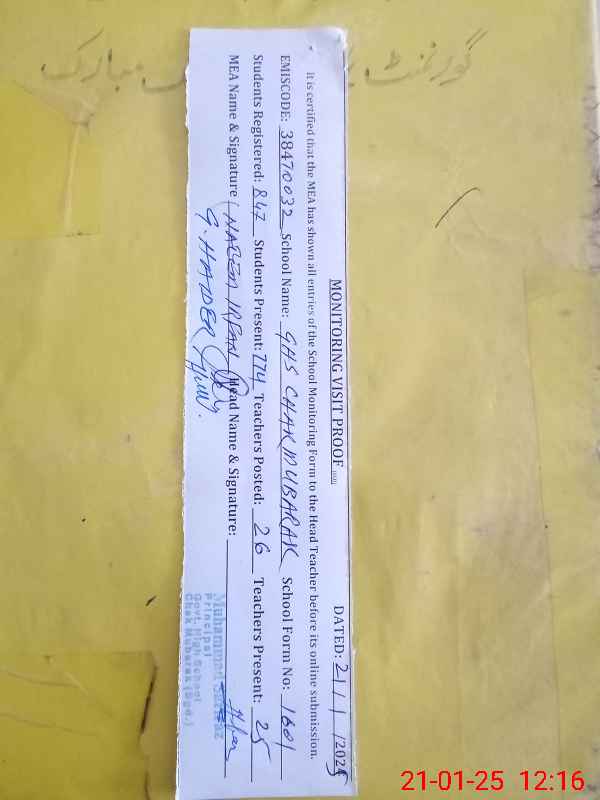 گورنمنٹ مبارک
MONITORING VISIT PROOF
DATED: 21/1/2025
It is certified that the MEA has shown all entries of the School Monitoring Form to the Head Teacher before its online submission.
EMISCODE: 38470032 School Name: GHS CHAK MUBARAK School Form No: 1601
Students Registered: 847 Students Present: 774 Teachers Posted: 26 Teachers Present: 25
MEA Name & Signature NAEEM IRFAN Head Name & Signature:
G. HAIDER
Muhammad
Principal
Govt. High School
Chak Mubarak (Sgd.)
21-01-25 12:16